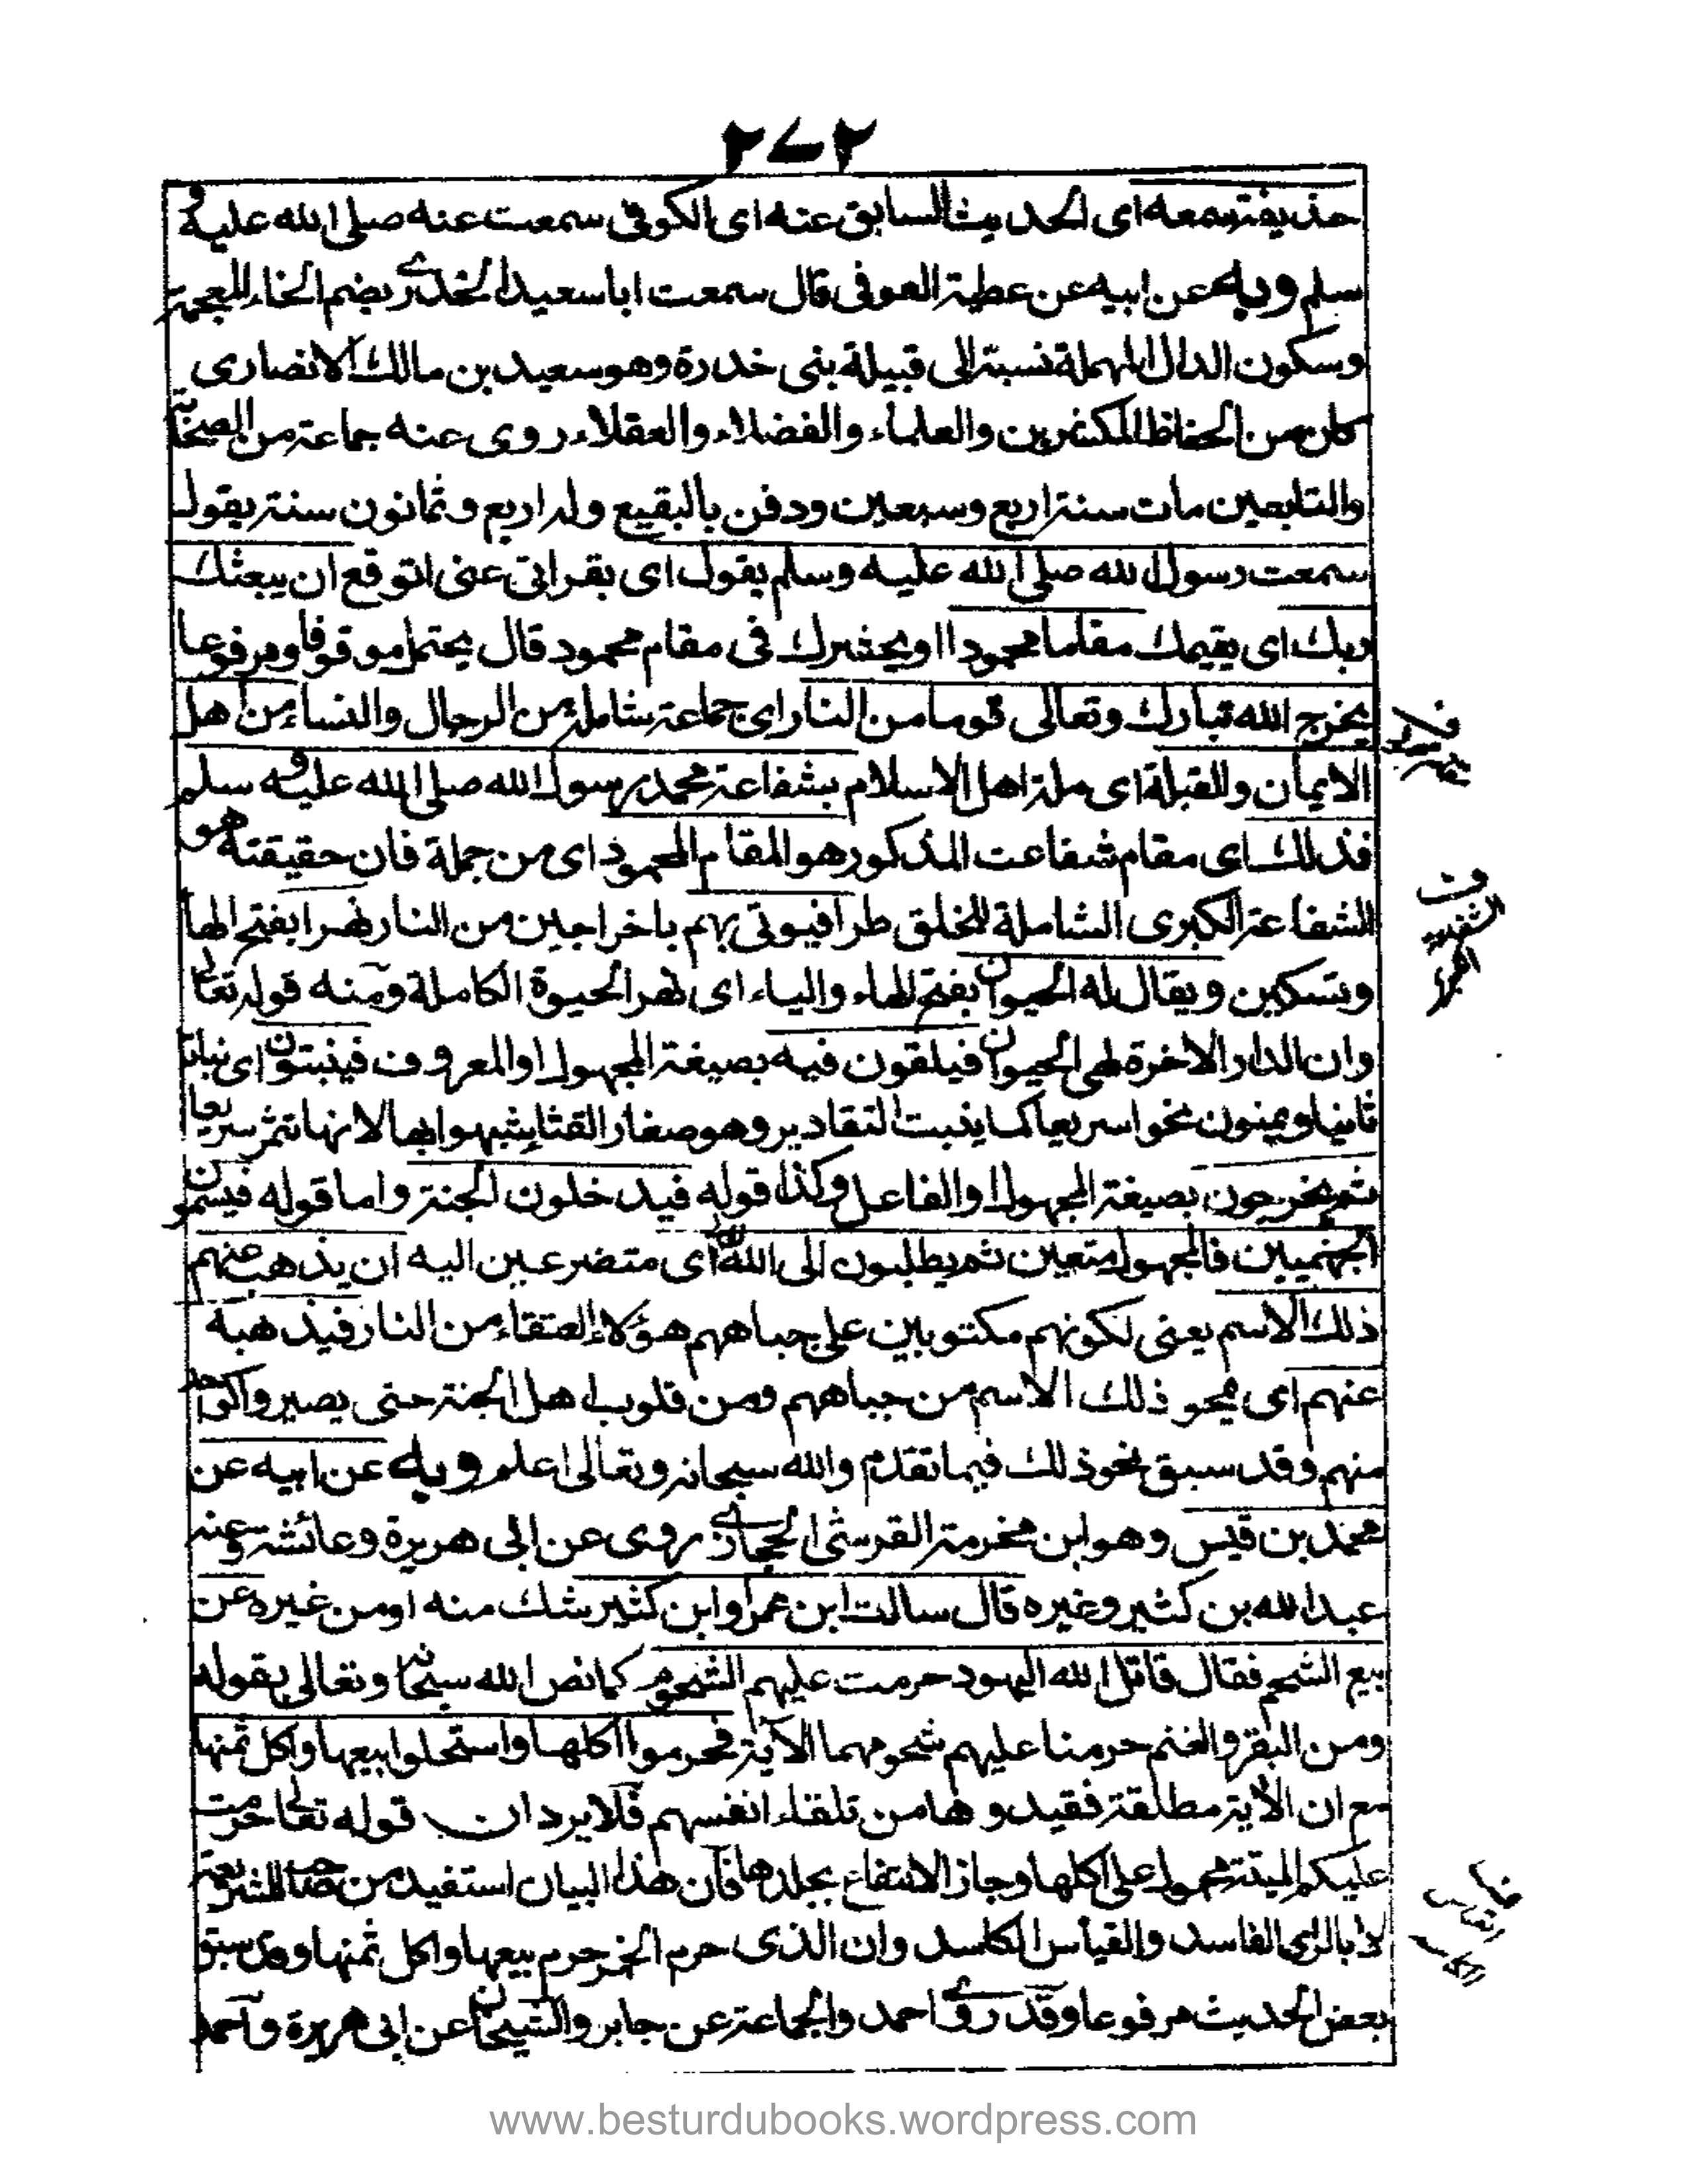 ٢٧٢
حذيفة سمعه اى الحديث السابق عنه اى الكوفى سمعت عنه صلى الله عليه و
سلم وبه عن ابيه عن عطية العوفى قال سمعت ابا سعيد الخدرى بضم الخاء المعجمة
وسكون الدال المهملة نسبة الى قبيلة بنى خدرة وهو سعيد بن مالك الانصارى
كان من الحفاظ المكثرين والعلماء والفضلاء والعقلاء روى عنه جماعة من الصحابة
والتابعين مات سنة اربع وسبعين ودفن بالبقيع وله اربع وثمانون سنة يقول
سمعت رسول الله صلى الله عليه وسلم يقول اى يقرا تى عنى اتوقع ان يبعثك
ربك اى يقيمك مقاما محمودا او يحشرك فى مقام محمود قال يحتمل موقوفا ومرفوعا
يخرج الله تبارك وتعالى قوما من النار اى جماعة شاملة من الرجال والنساء من اهل
الايمان والقبلة اى ملة اهل الاسلام بشفاعة محمد رسول الله صلى الله عليه و سلم
فذلك اى مقام شفاعت المذكور هو المقام المحمود اى من جملة فان حقيقته هو
الشفاعة الكبرى الشاملة للخلق طرا فيوتى بهم باخراجين من النار نهرا بفتح الهاء
وتسكين ويقال له الحيوان بفتح الهاء والياء اى نهر الحيوة الكاملة ومنه قوله تعالى
وان الدار الاخرة لهى الحيوان فيلقون فيه بصيغة المجهول او المعروف فينبتون اى نباتا
ثانيا او يمنون نحوا سريعا كما ينبت التقادير وهو صغار القثا يشبهوا بها لانها تثمر سريعا
ثم يخرجون بصيغة المجهول او الفاعل وكذا قوله فيدخلون الجنة واما قوله فيسمون
الجهنميين فالمجهول متعين ثم يطلبون الى الله اى متضرعين اليه ان يذهب عنهم
ذلك الاسم يعنى لكونهم مكتوبين على جباههم هؤلاء العتقاء من النار فيذهبه
عنهم اى يمحو ذلك الاسم من جباههم ومن قلوب اهل الجنة حتى يصيروا كواحد
منهم وقد سبق نحو ذلك فيما تقدم والله سبحانه وتعالى اعلم وبه عن ابيه عن
محمد بن قيس وهو ابن مخرمة القرشى الحجازى روى عن ابى هريرة وعائشة وعنه
عبدالله بن كثير وغيره قال سالت ابن عمر او ابن كثير شك منه او من غيره عن
بيع الشحم فقال قاتل الله اليهود حرمت عليهم الشحوم كما نص الله سبحانه وتعالى بقوله
ومن البقر والغنم حرمنا عليهم شحومهما الآية فحرموا اكلها واستحلوا بيعها واكل ثمنها
مع ان الآية مطلقة فقيدوها من تلقاء انفسهم فلا يرد ان قوله تعالى حرمت
عليكم الميتة محمول على اكلها وجاز الانتفاع بجلدها فان هذا البيان استفيد من صاحب الشريعة
لا بالراى الفاسد والقياس الكاسد وان الذى حرم الخمر حرم بيعها واكل ثمنها وقد سبق
بعض الحديث مرفوعا وقد روى احمد والجماعة عن جابر والشيخان عن ابى هريرة واحمد
www.besturdubooks.wordpress.com